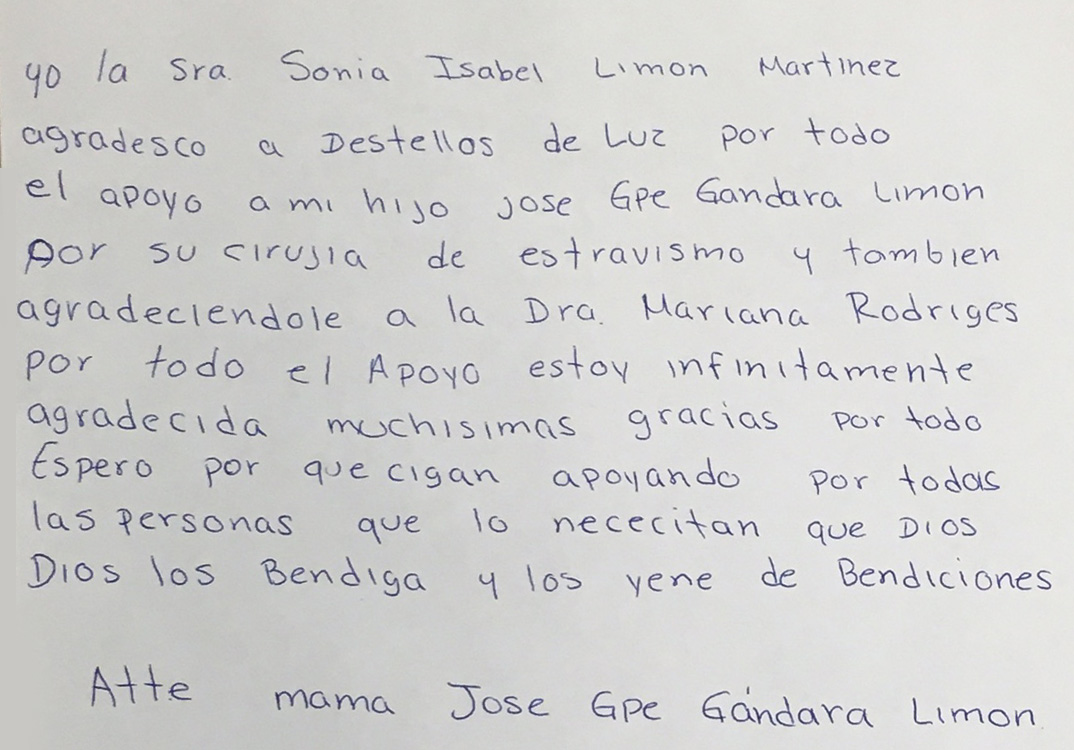 yo la Sra. Sonia Isabel Limon Martinez
agradesco a Destellos de Luz por todo
el apoyo a mi hijo jose Gpe Gandara Limon
por su cirujia de estravismo y tambien
agradeciendole a la Dra. Mariana Rodriges
por todo el Apoyo estoy infinitamente
agradecida muchisimas gracias por todo
Espero por que cigan apoyando por todas
las personas que lo nececitan que Dios
Dios los Bendiga y los yene de Bendiciones
Atte mama Jose Gpe Gándara Limon